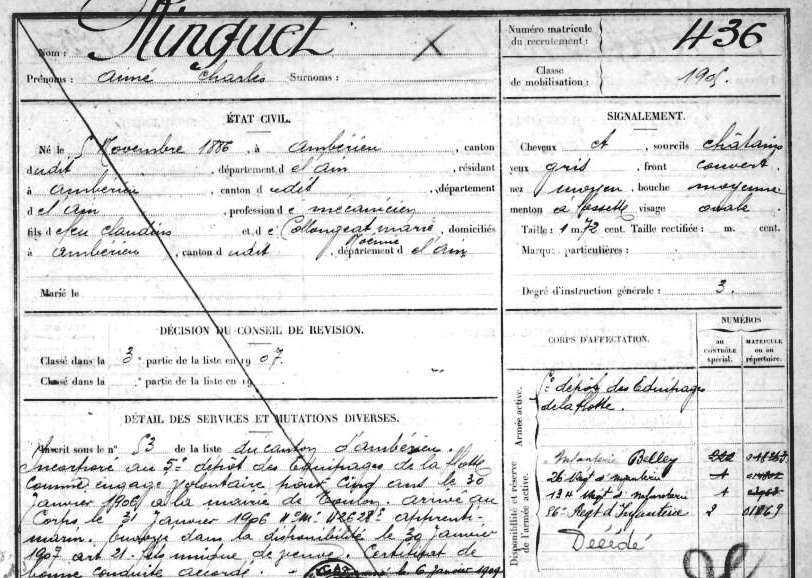 Nom : Ninguet
Prénoms : aimé Charles Surnoms :
Numéro matricule du recrutement : 436
Classe de mobilisation : 1905.
ÉTAT CIVIL.
Né le 5 Novembre 1886, à ambérieu, canton
dudit, département d el'ain, résidant
à ambérieu, canton d udit, département
d el'ain, profession d e mecanicien
fils d efeu claudius et d e Collongeat marie Noémie, domiciliés
à ambérieu, canton d udit, département d el'ain
Marié le
DÉCISION DU CONSEIL DE REVISION.
Classé dans la 3e partie de la liste en 1907.
Classé dans la e partie de la liste en 19
DÉTAIL DES SERVICES ET MUTATIONS DIVERSES.
Inscrit sous le n° 53 de la liste du canton d'ambérieu.
Incorporé au 5e dépôt des Equipages de la flotte
comme engagé volontaire pour cinq ans le 30
janvier 1906 à la mairie de Toulon. arrivé au
Corps le 31 janvier 1906 No Mle 42628 apprenti-
marin. Envoyé dans la disponibilité le 30 janvier
1907 art 21. fils unique de veuve. Certificat de
bonne conduite accordé.
le 6 janvier 1909
SIGNALEMENT.
Cheveux et, sourcils châtains
yeux gris, front couvert
nez moyen, bouche moyenne
menton à fossette visage ovale.
Taille : 1 m. 72 cent. Taille rectifiée : m. cent.
Marques particulières :
Degré d'instruction générale : 3.
CORPS D'AFFECTATION.
NUMÉROS
au CONTRÔLE spécial.
MATRICULE ou au répertoire.
Armée active.
5e dépôt des Equipages
de la flotte.
Disponibilité et réserve de l'armée active.
Infanterie Belley 222
26 Régt d'infanterie 1
134 Régt d'infanterie 1
86e Régt d'Infanterie 2
Décédé